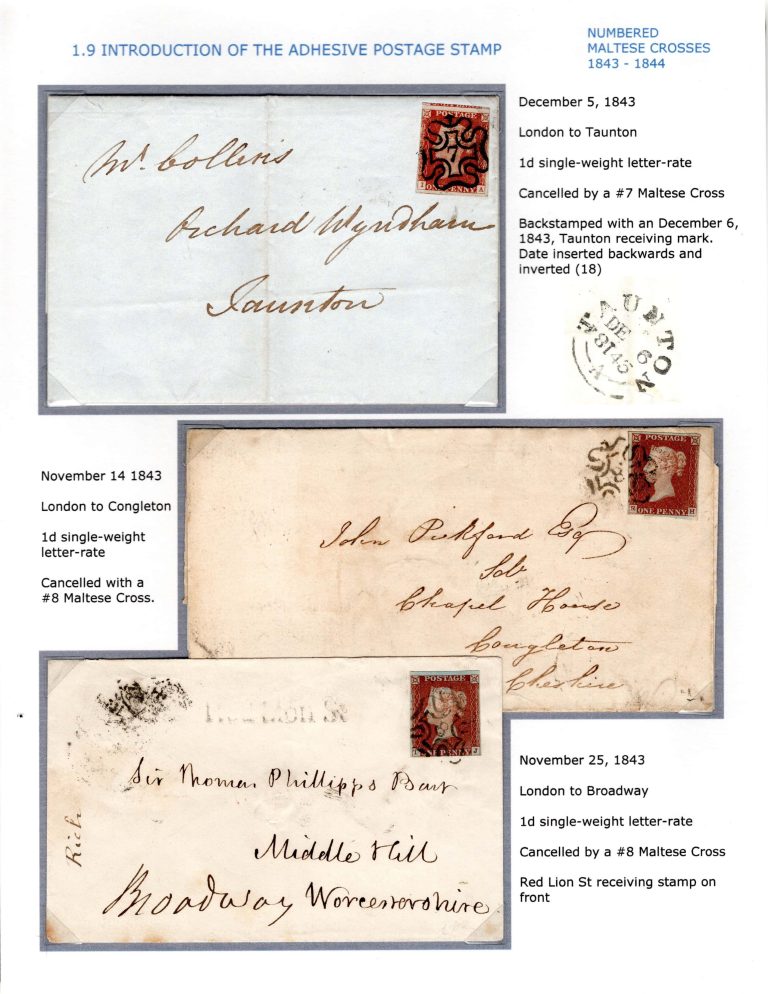 1.9 INTRODUCTION OF THE ADHESIVE POSTAGE STAMP
NUMBERED
MALTESE CROSSES
1843 - 1844
December 5, 1843
London to Taunton
1d single-weight letter-rate
Cancelled by a #7 Maltese Cross
Backstamped with an December 6,
1843, Taunton receiving mark.
Date inserted backwards and
inverted (18)
Mr. Collins
Orchard Wyndham
Taunton
POSTAGE
7
ONE PENNY
A
TAUNTON
DE 6
A
November 14 1843
London to Congleton
1d single-weight
letter-rate
Cancelled with a
#8 Maltese Cross.
POSTAGE
8
ONE PENNY
John Pickford Esq
Solr
Chapel House
Congleton
Cheshire
POSTAGE
8
ONE PENNY
J
Sir Thomas Phillipps Bart
Middle Hill
Broadway Worcestershire
Rich
November 25, 1843
London to Broadway
1d single-weight letter-rate
Cancelled by a #8 Maltese Cross
Red Lion St receiving stamp on
front